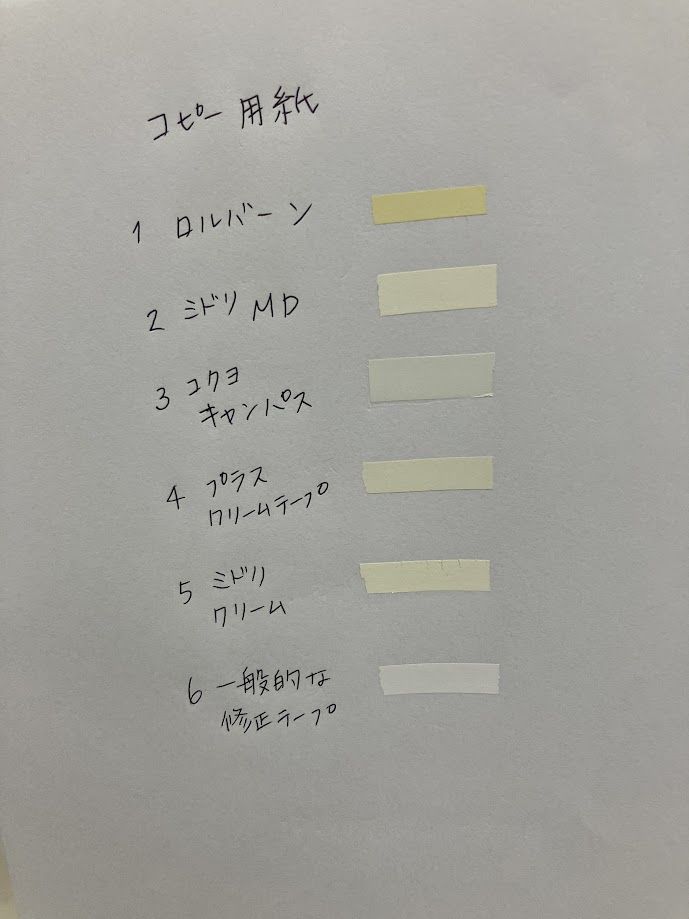 コピー用紙
1 ロルバーン
2 ミドリ MD
3 コクヨ
キャンパス
4 プラス
クリームテープ
5 ミドリ
クリーム
6 一般的な
修正テープ